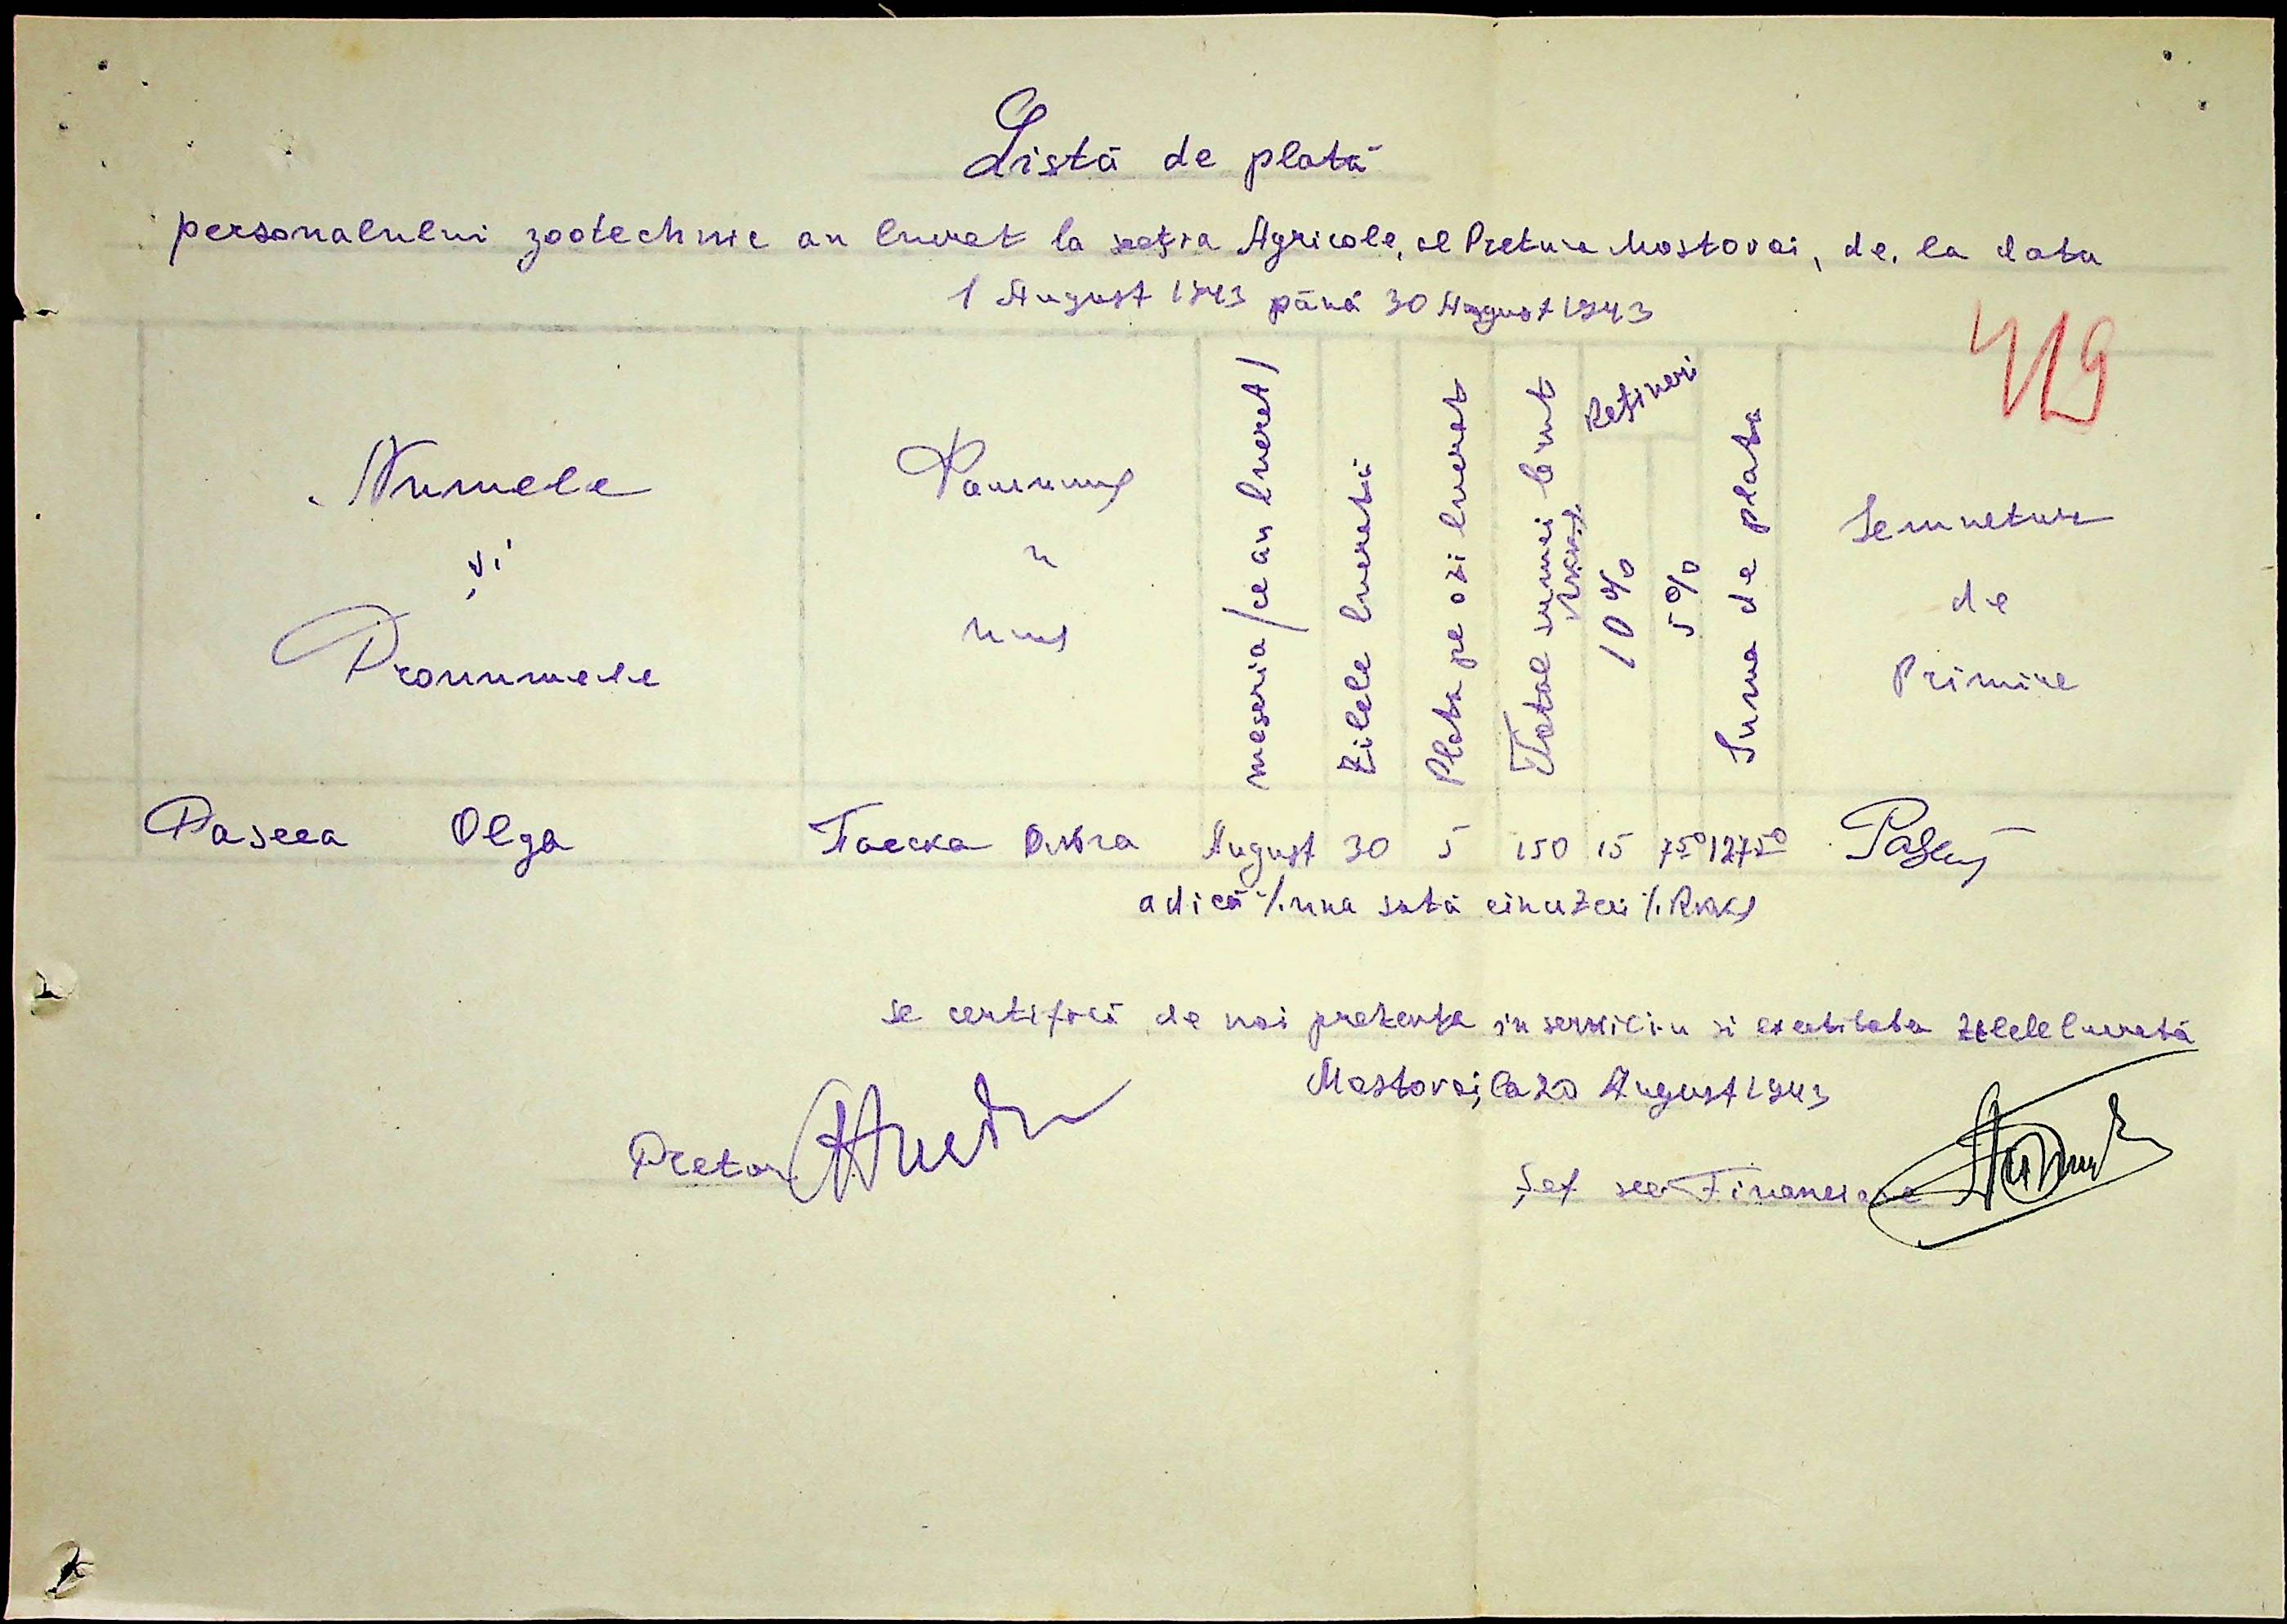 Listă de plată
personalului zootechnic au lucrat la secția Agricole, al Pretura Mostovoi, de. la data
1 August 1943 până 30 August 1943
419
Numele
și
Pronumele
Фамилия
и
имя
meseria/ce au lucrat/
Zilele lucrată
Plata pe ozi lucrat
Total sumei brut
RKKS
Rețineri
10%
5%
Suma de plata
Semnetura
de
Primire
Pascca Olga Паска Ольга August 30 5 150 15 7 50 127 50
adică %una sută cinczeci % RKKS
se certifică de noi prezența in serviciu si Zilele lucrată
Mostovoi, la 20 August 1943
Pretor
Șef sec Financiare